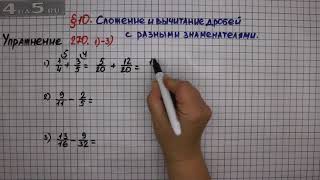 4 на 5.ru
§10. Сложение и вычитание дробей
с разными знаменателями.
Упражнение 270. 1)-3)
1) 1/4 ⁵ + 3/5 ⁴ = 5/20 + 12/20 =
2) 9/11 - 2/5 =
3) 13/16 - 9/32 =